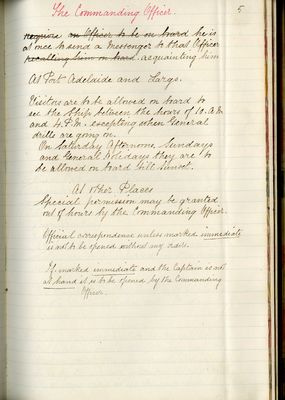 The Commanding Officer. 5
require an Officer to be on board he is
at once to send a messenger to that Officer
recalling him on board. acquainting him
At Port Adelaide and Largs.
Visitors are to be allowed on board to
see the Ship between the hours of 10. A.M
and 4. P.M. excepting when General
drills are going on.
On Saturday Afternoons Sundays
and General Holidays they are to
be allowed on board till Sunset.
At other Places
Special permission may be granted
out of hours by the Commanding Officer.
Official correspondence unless marked immediate
is not to be opened without my orders.
If marked immediate and the Captain is not
at hand it is to be opened by the Commanding
Officer.